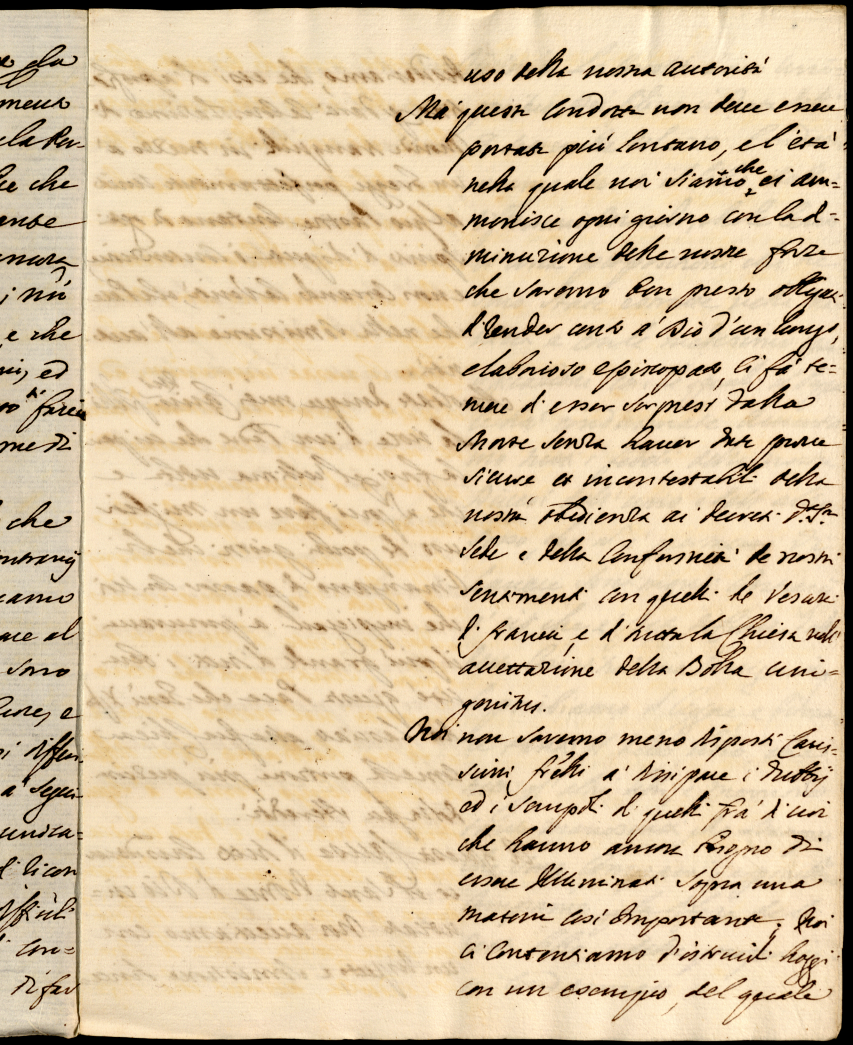 uso della nostra autorità
Ma questa condotta non deve essere
portata più lontano, e l'età
nella quale noi siamo, che ci am=
monisce ogni giorno con la di=
minuzione delle nostre forze
che saremo ben presto
di render conto a Dio d'un lungo,
e laborioso episcopato, ci fà te=
mere d'esser sorpresi dalla
Morte senza haver date prove
sicure et incontestabili della
nostra obedienza ai decreti d. S.
Sede e della Conformità de nostri
sentimenti con quelli de Vescovi
di francia, e di tutta la Chiesa nell'
accettazione della Bolla uni=
genitus.
Noi non saremo meno disposti Caris=
simi fr'elli à dissipare i dubbij
ed i scrupoli di quelli frà di voi
che hanno ancora bisogno di
essere Illuminati sopra una
materia così Importante. Noi
ci contentiamo d'istruirli hoggi
con un esempio, del quale
ela
che
ancora
e che
ed
me di
che
al
sono
e
à
di far